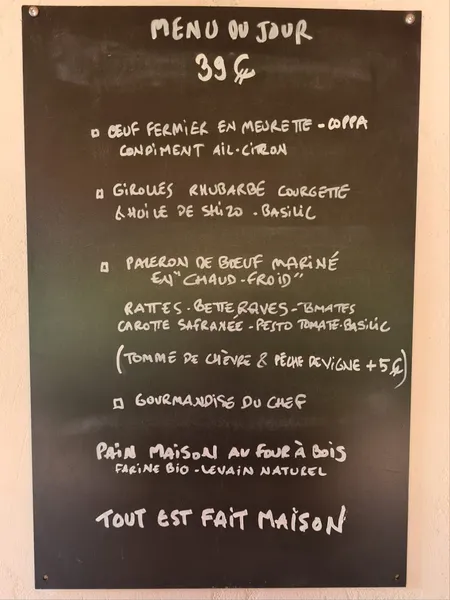 MENU DU JOUR
39 €
OEUF FERMIER EN MEURETTE - COPPA
CONDIMENT AIL-CITRON
GIROLLES RHUBARBE COURGETTE
& HUILE DE SHIZO - BASILIC
PALERON DE BOEUF MARINÉ
EN "CHAUD-FROID"
RATTES - BETTERAVES - TOMATES
CAROTTE SAFRANÉE - PESTO TOMATE-BASILIC
(TOMME DE CHÈVRE & PÊCHE DE VIGNE +5€)
GOURMANDISE DU CHEF
PAIN MAISON AU FOUR À BOIS
FARINE BIO - LEVAIN NATUREL
TOUT EST FAIT MAISON